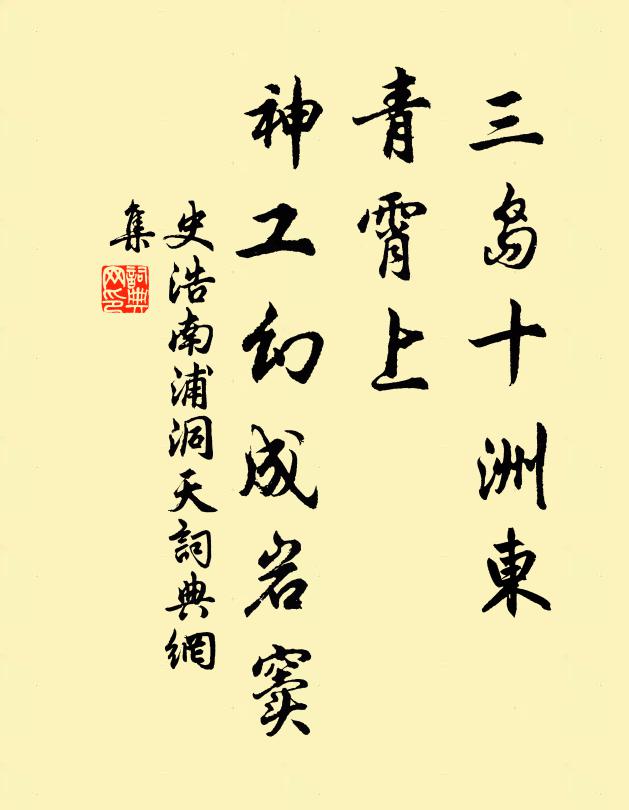 三島十洲東
青霄上
神工幻成岩竇
史浩南浦洞天詞典網
集
詞典網印